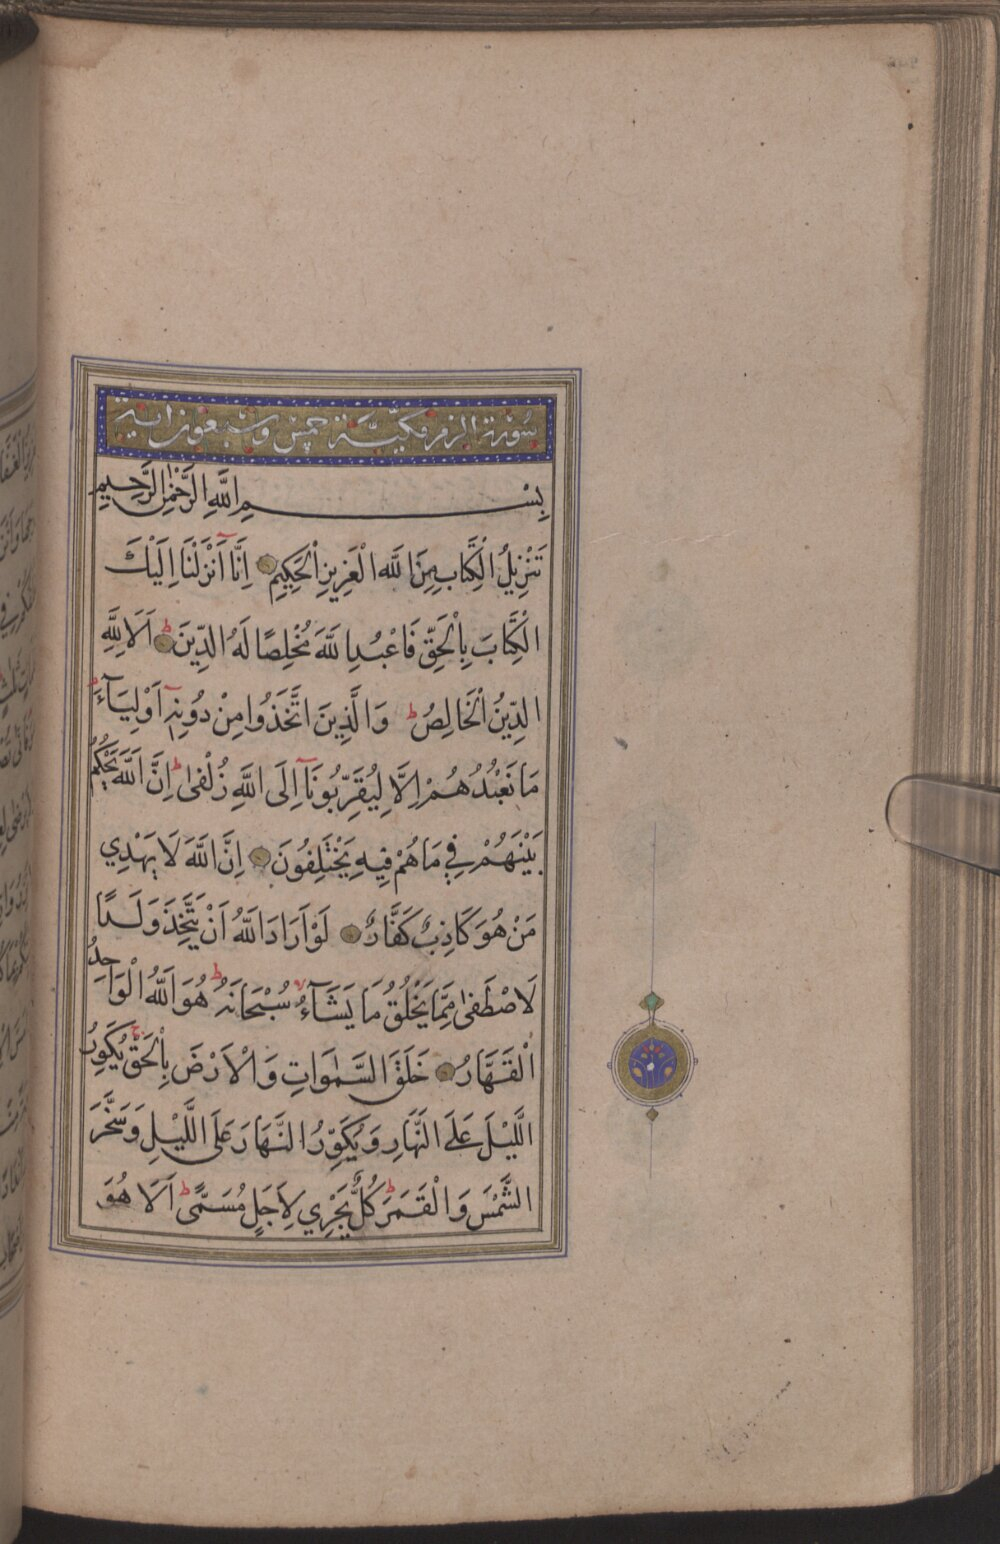 سورة الزمر مكية خمس وسبعون اية
بِسْمِ اللَّهِ الرَّحْمٰنِ الرَّحِيمِ
تَنْزِيلُ الْكِتَابِ مِنَ اللَّهِ الْعَزِيزِ الْحَكِيمِ اِنَّا أَنْزَلْنَا اِلَيْكَ
الْكِتَابَ بِالْحَقِّ فَاعْبُدِ اللَّهَ مُخْلِصًا لَهُ الدِّينَ ط اَلَا لِلَّهِ
الدِّينُ الْخَالِصُ ط وَالَّذِينَ اتَّخَذُوا مِنْ دُونِهِ اَوْلِيَآءَ
مَا نَعْبُدُهُمْ اِلَّا لِيُقَرِّبُونَآ اِلَى اللَّهِ زُلْفٰى ط اِنَّ اللَّهَ يَحْكُمُ
بَيْنَهُمْ فِي مَا هُمْ فِيهِ يَخْتَلِفُونَ اِنَّ اللَّهَ لَا يَهْدِي
مَنْ هُوَ كَاذِبٌ كَفَّارٌ لَوْ اَرَادَ اللَّهُ اَنْ يَتَّخِذَ وَلَدًا
لَاصْطَفٰى مِمَّا يَخْلُقُ مَا يَشَآءُ لا سُبْحَانَهُ ط هُوَ اللَّهُ الْوَاحِدُ
الْقَهَّارُ خَلَقَ السَّمٰوَاتِ وَالْاَرْضَ بِالْحَقِّ ج يُكَوِّرُ
اللَّيْلَ عَلَى النَّهَارِ وَيُكَوِّرُ النَّهَارَ عَلَى اللَّيْلِ وَسَخَّرَ
الشَّمْسَ وَالْقَمَرَ ط كُلٌّ يَجْرِي لِاَجَلٍ مُسَمًّى ط اَلَا هُوَ